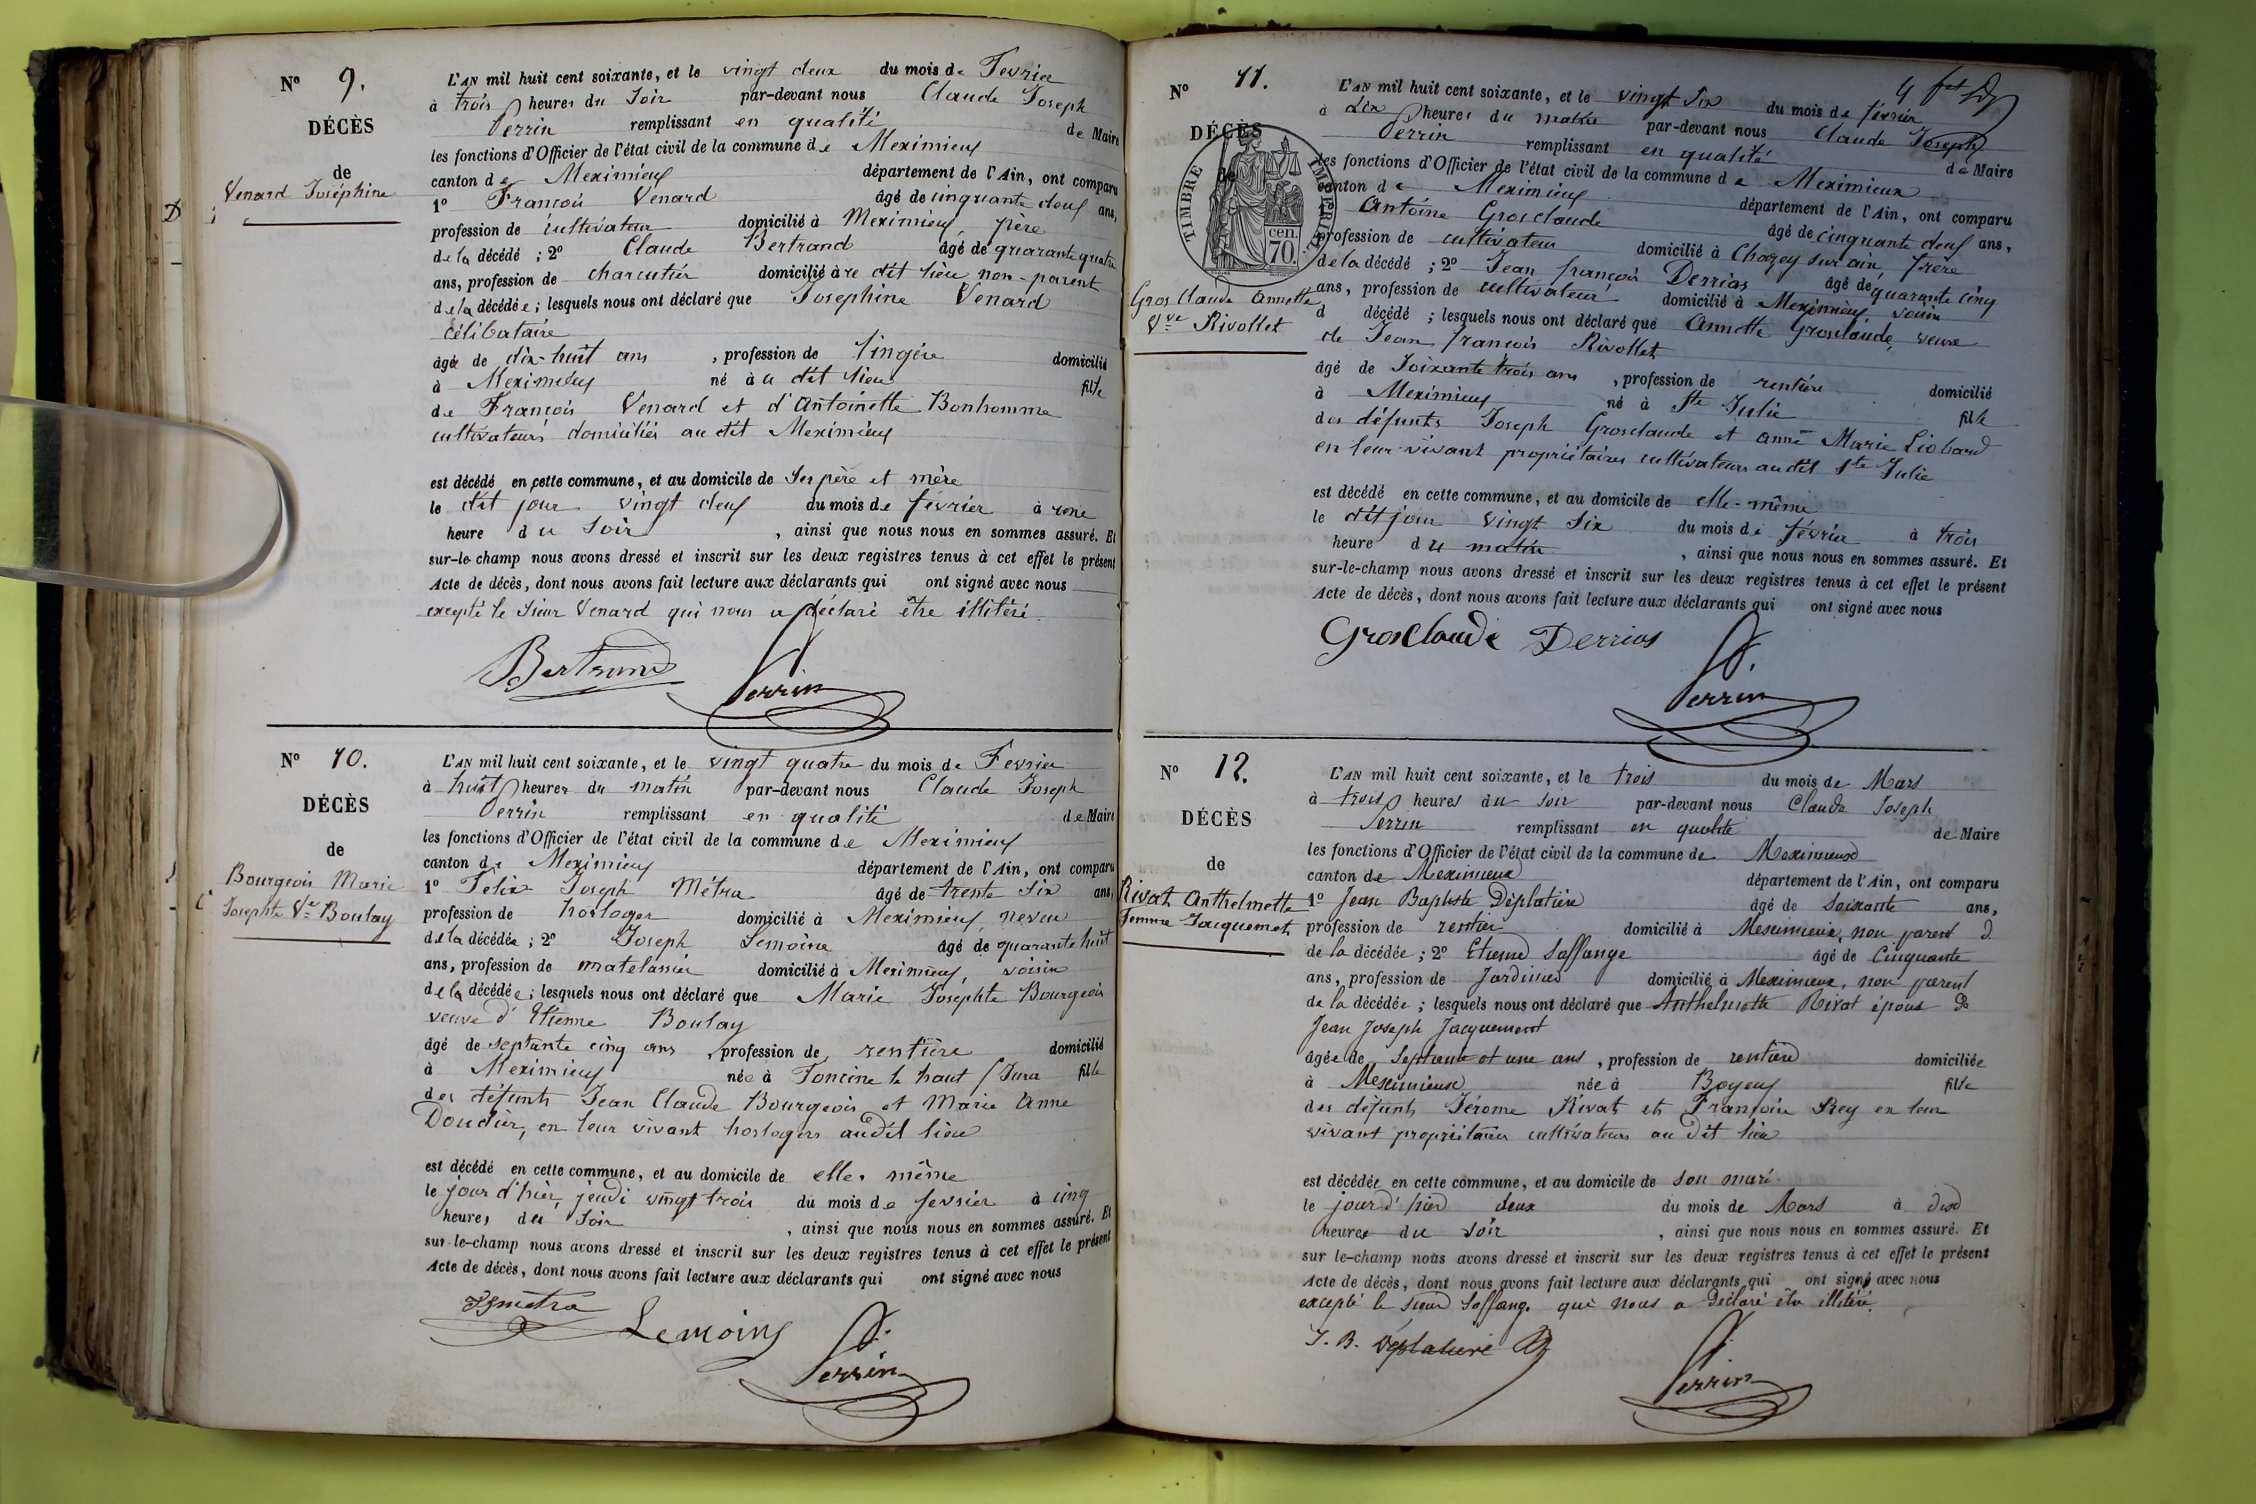 Nº 9.
DÉCÈS
de
Venard Joséphine
L'AN mil huit cent soixante, et le vingt deux du mois de Fevrier
à trois heures du soir par-devant nous Claude Joseph
Perrin remplissant en qualité de Maire
les fonctions d'Officier de l'état civil de la commune de Meximieux
canton de Meximieux département de l'Ain, ont comparu
1º François Venard âgé de cinquante deux ans,
profession de cultivateur domicilié à Meximieux, père
de la décédé ; 2º Claude Bertrand âgé de quarante quatre
ans, profession de charcutier domicilié à ce dit lieu non-parent
de la décédée ; lesquels nous ont déclaré que Josephine Venard
célibataire
âgé de dix-huit ans , profession de lingère domicilié
à Meximieux né à u dit lieu fille
de François Venard et d'Antoinette Bonhomme
cultivateurs domiciliés au dit Meximieux
est décédé en cette commune, et au domicile de ses père et mère
le dit jour vingt deux du mois de février à une
heure du soir , ainsi que nous nous en sommes assuré. Et
sur-le-champ nous avons dressé et inscrit sur les deux registres tenus à cet effet le présent
Acte de décès, dont nous avons fait lecture aux déclarants qui ont signé avec nous
excepté le sieur Venard qui nous a déclaré être illitéré.
Bertrand Perrin
Nº 10.
DÉCÈS
de
Bourgeois Marie
Josephte Vve Boulay
L'AN mil huit cent soixante, et le vingt quatre du mois de Fevrier
à huit heures du matin par-devant nous Claude Joseph
Perrin remplissant en qualité de Maire
les fonctions d'Officier de l'état civil de la commune de Meximieux
canton de Meximieux département de l'Ain, ont comparu
1º Félix Joseph Métra âgé de trente six ans,
profession de horloger domicilié à Meximieux, neveu
de la décédée ; 2º Joseph Lemoine âgé de quarante huit
ans, profession de matelassier domicilié à Meximieux, voisin
de la décédée ; lesquels nous ont déclaré que Marie Joséphte Bourgeois
veuve d'Etienne Boulay
âgé de septante cinq ans , profession de rentière domicilié
à Meximieux née à Foncine le haut (Jura fille
des défunts Jean Claude Bourgeois et Marie Anne
Doudier, en leur vivant horlogers audit lieu
est décédé en cette commune, et au domicile de elle-même
le jour d'hier, jeudi vingt trois du mois de fevrier à cinq
heures du soir , ainsi que nous nous en sommes assuré. Et
sur-le-champ nous avons dressé et inscrit sur les deux registres tenus à cet effet le présent
Acte de décès, dont nous avons fait lecture aux déclarants qui ont signé avec nous
Lemoine Perrin
Nº 11.
DÉCÈS
de
TIMBRE IMPÉRIAL
cen.
70.
Gros Claude Annette
Vve Rivollet
L'AN mil huit cent soixante, et le vingt six du mois de février
à dix heures du matin par-devant nous Claude Joseph
Perrin remplissant en qualité de Maire
les fonctions d'Officier de l'état civil de la commune de Meximieux
canton de Meximieux département de l'Ain, ont comparu
1º Antoine Grosclaude âgé de cinquante deux ans,
profession de cultivateur domicilié à Chazey sur ain, frère
de la décédé ; 2º Jean françois Derrias âgé de quarante cinq
ans, profession de cultivateur domicilié à Meximieux, voisin
d décédé ; lesquels nous ont déclaré que Annette Grosclaude, veuve
de Jean françois Rivollet
âgé de soixante trois ans , profession de rentière domicilié
à Meximieux né à Ste Julie fille
des défunts Joseph Grosclaude et anne Marie Liobard
en leur vivant propriétaires cultivateurs audit Ste Julie
est décédé en cette commune, et au domicile de elle-même
le dit jour vingt six du mois de février à trois
heure du matin , ainsi que nous nous en sommes assuré. Et
sur-le-champ nous avons dressé et inscrit sur les deux registres tenus à cet effet le présent
Acte de décès, dont nous avons fait lecture aux déclarants qui ont signé avec nous
GrosClaude Derrias Perrin
Nº 12.
DÉCÈS
de
Rivat Anthelmette
femme Jacquemet
L'AN mil huit cent soixante, et le trois du mois de Mars
à trois heures du soir par-devant nous Claude Joseph
Perrin remplissant en qualité de Maire
les fonctions d'Officier de l'état civil de la commune de Meximieux
canton de Meximieux département de l'Ain, ont comparu
1º Jean Baptiste Déplatière âgé de soixante ans,
profession de rentier domicilié à Meximieux, non parent
de la décédée ; 2º Etienne Laffange âgé de Cinquante
ans, profession de Jardinier domicilié à Meximieux, non parent
de la décédée ; lesquels nous ont déclaré que Anthelmette Rivat épouse de
Jean Joseph Jacquemont
âgée de septante et une ans , profession de rentière domiciliée
à Meximieux née à Bogeux fille
des défunts Jérome Rivat et Françoise Rey en leur
vivant propriétaires cultivateurs au dit lieu
est décédée en cette commune, et au domicile de son mari
le jour d'hier deux du mois de Mars à deux
heures du soir , ainsi que nous nous en sommes assuré. Et
sur le-champ nous avons dressé et inscrit sur les deux registres tenus à cet effet le présent
Acte de décès, dont nous avons fait lecture aux déclarants qui ont signé avec nous
excepté le sieur Laffange qui nous a déclaré être illitéré.
J. B. Déplatière Perrin